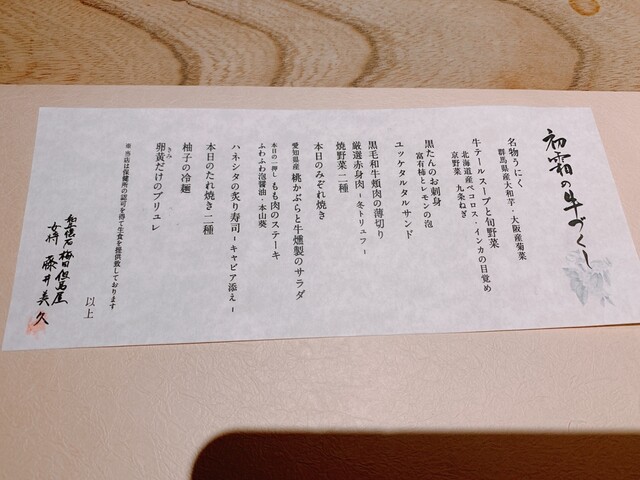 初霜の牛づくし
名物うにく
群馬県産大和芋・大阪産菊菜
牛テールスープと旬野菜
北海道産ペコロス・インカの目覚め
京野菜 九条ねぎ
黒たんのお刺身
富有柿とレモンの泡
ユッケタルタルサンド
黒毛和牛頬肉の薄切り
厳選赤身肉-冬トリュフ-
焼野菜 二種
本日のみぞれ焼き
愛知県産 桃かぶらと牛燻製のサラダ
本日の一押し もも肉のステーキ
ふわふわ泡醤油・本山葵
ハネシタの炙り寿司-キャビア添え-
本日のたれ焼き 二種
柚子の冷麺
卵黄だけのブリュレ
きみ
※当店は保健所の認可を得て生食を提供致しております
以上
梅田 但馬屋
女将 藤井美久